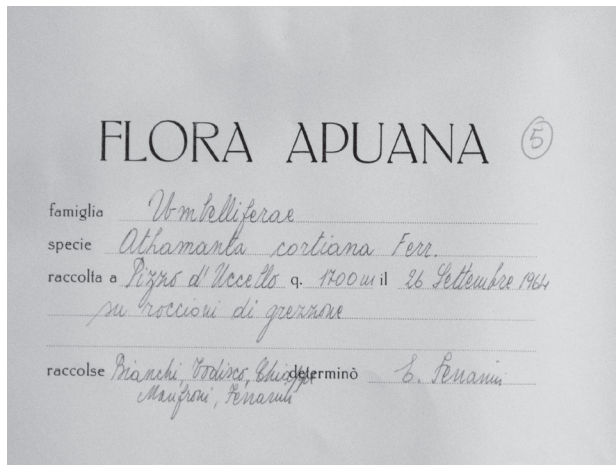 FLORA APUANA 5
famiglia Umbelliferae
specie Athamanta cortiana Ferr.
raccolta a Pizzo d'Uccello q. 1700 m il 26 Settembre 1964
su roccioni di grezzone
raccolse Bianchi, determinò E. Ferrarini
Manfroni, Ferrarini